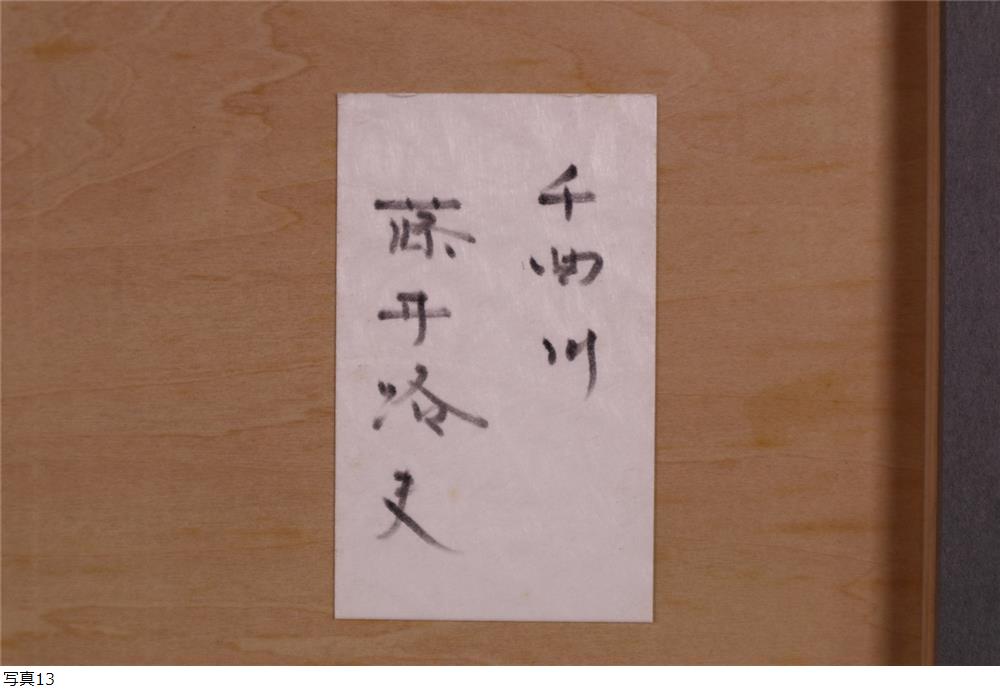 千曲川
藤井冷夫
写真13